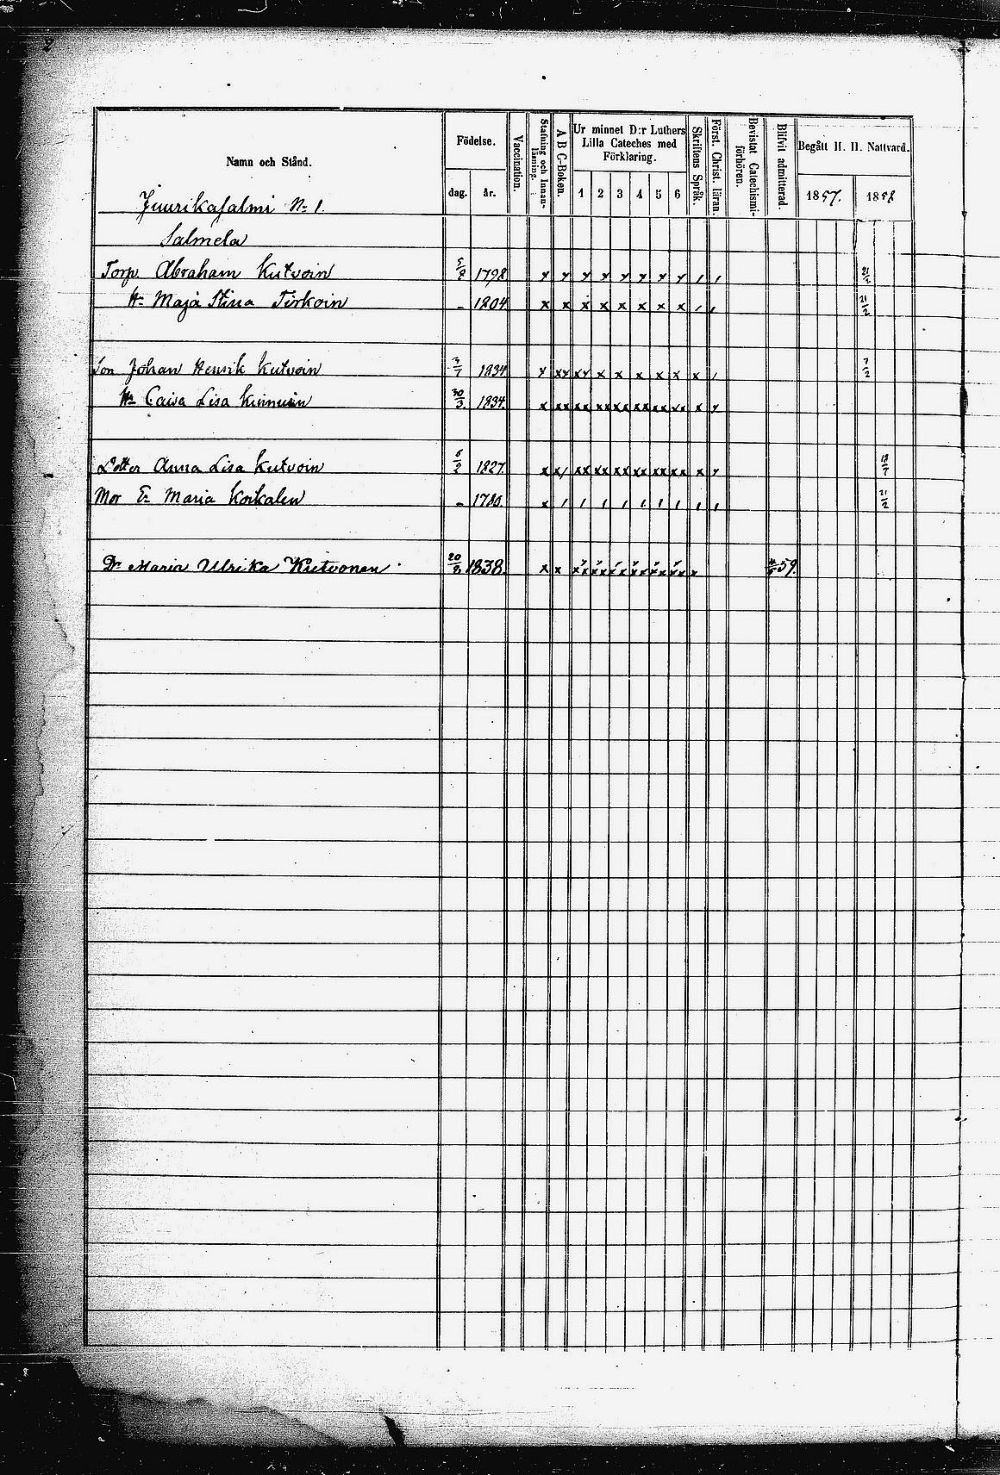 2
Namn och Stånd.
Födelse.
dag.
år.
Vaccination.
Stafning och Innanläsning.
A B C-Boken.
Ur minnet D:r Luthers Lilla Cateches med Förklaring.
1 2 3 4 5 6
Skriftens Språk.
Först. Christ. läran.
Bevistat Catechismiförhören.
Blifvit admitterad.
Begått H. H. Nattvard.
1857. 1858
Juurikasalmi No 1.
Salmela
Torp. Abraham Kutvoin 5/2 1798 x x x x x x x x / / 21/2
H: Maja Stina Tirkoin - 1804 x x x x x x x x / / 21/2
Son Johan Henrik Kutvoin 1834 x xx xx x x x x x x / 7/2
H: Caisa Lisa Kinnuin 30/3 1834. x xx xx xx xx xx xx xx x x
Dotter Anna Lisa Kutvoin 1827 x x/ xx xx xx xx xx xx x
Mor E: Maria Koikalen - 1780. x / / / / / / / / / 21/2
Dr Maria Ulrika Kutvonen 20/8 1838. x x 59.